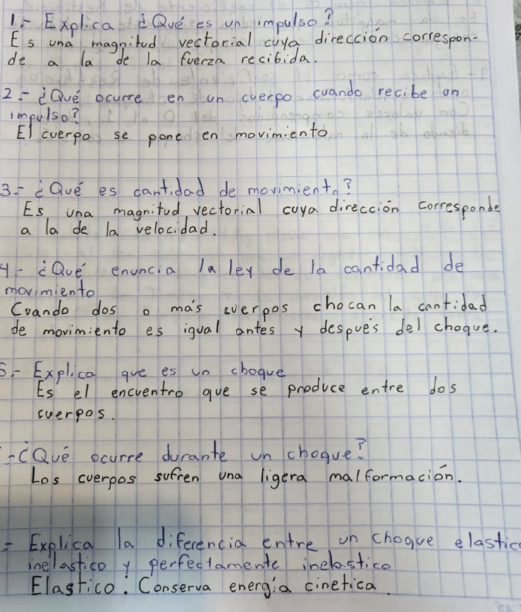 1.- Explica ¿Qué es un impulso?
Es una magnitud vectorial cuya dirección correspon-
de a la de la fuerza recibida.
2.- ¿Qué ocurre en un cuerpo cuando recibe un
impulso?
El cuerpo se pone en movimiento
3.- ¿Qué es cantidad de movimiento?
Es una magnitud vectorial cuya dirección corresponde
a la de la velocidad.
4.- ¿Qué enuncia la ley de la cantidad de
movimiento
Cuando dos o más cuerpos chocan la cantidad
de movimiento es igual antes y después del choque.
5.- Explica que es un choque
Es el encuentro que se produce entre dos
cuerpos.
- ¿Qué ocurre durante un choque?
Los cuerpos sufren una ligera malformación.
- Explica la diferencia entre un choque elastico
inelastico y perfectamente inelastico
Elastico. Conserva energía cinetica.